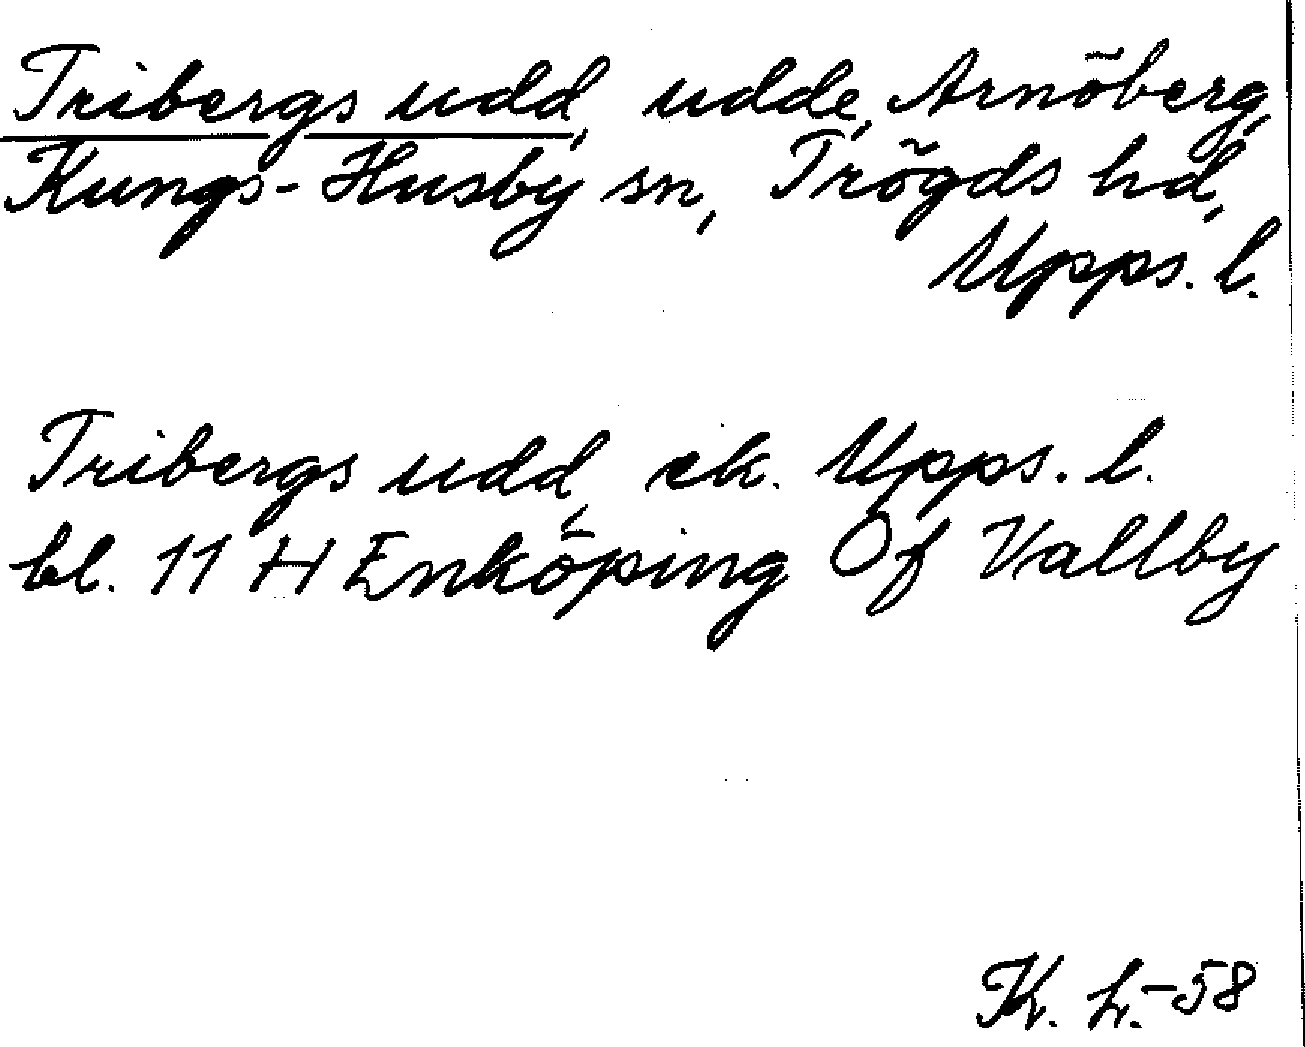 Tribergs udd, udde, Arnöberg,
Kungs-Husby sn, Trögds hd,
Upps. l.
Tribergs udd, ek. Upps. l.
bl. 11 H Enköping Of Vallby
K. L.-58